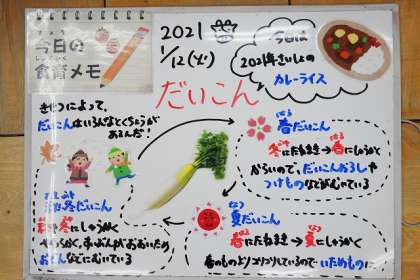 きょう
今日の
しょくいく
食育メモ
2021
1/12(火)
今日は
2021年さいしょの
カレーライス
だいこん
きせつによって、
だいこんはいろんなとくちょうが
あるんだ!
はる
春だいこん
冬にたねまき→春にしゅうかく
からいので、だいこんおろしや
つけものなどがむいている
なつ
夏だいこん
春にたねまき→夏にしゅうかく
春のものよりコリコリしているので いためものに
あきふゆ
秋冬だいこん
秋冬にしゅうかく
やわらかく、すいぶんがおおいため
おでんなどにむいている